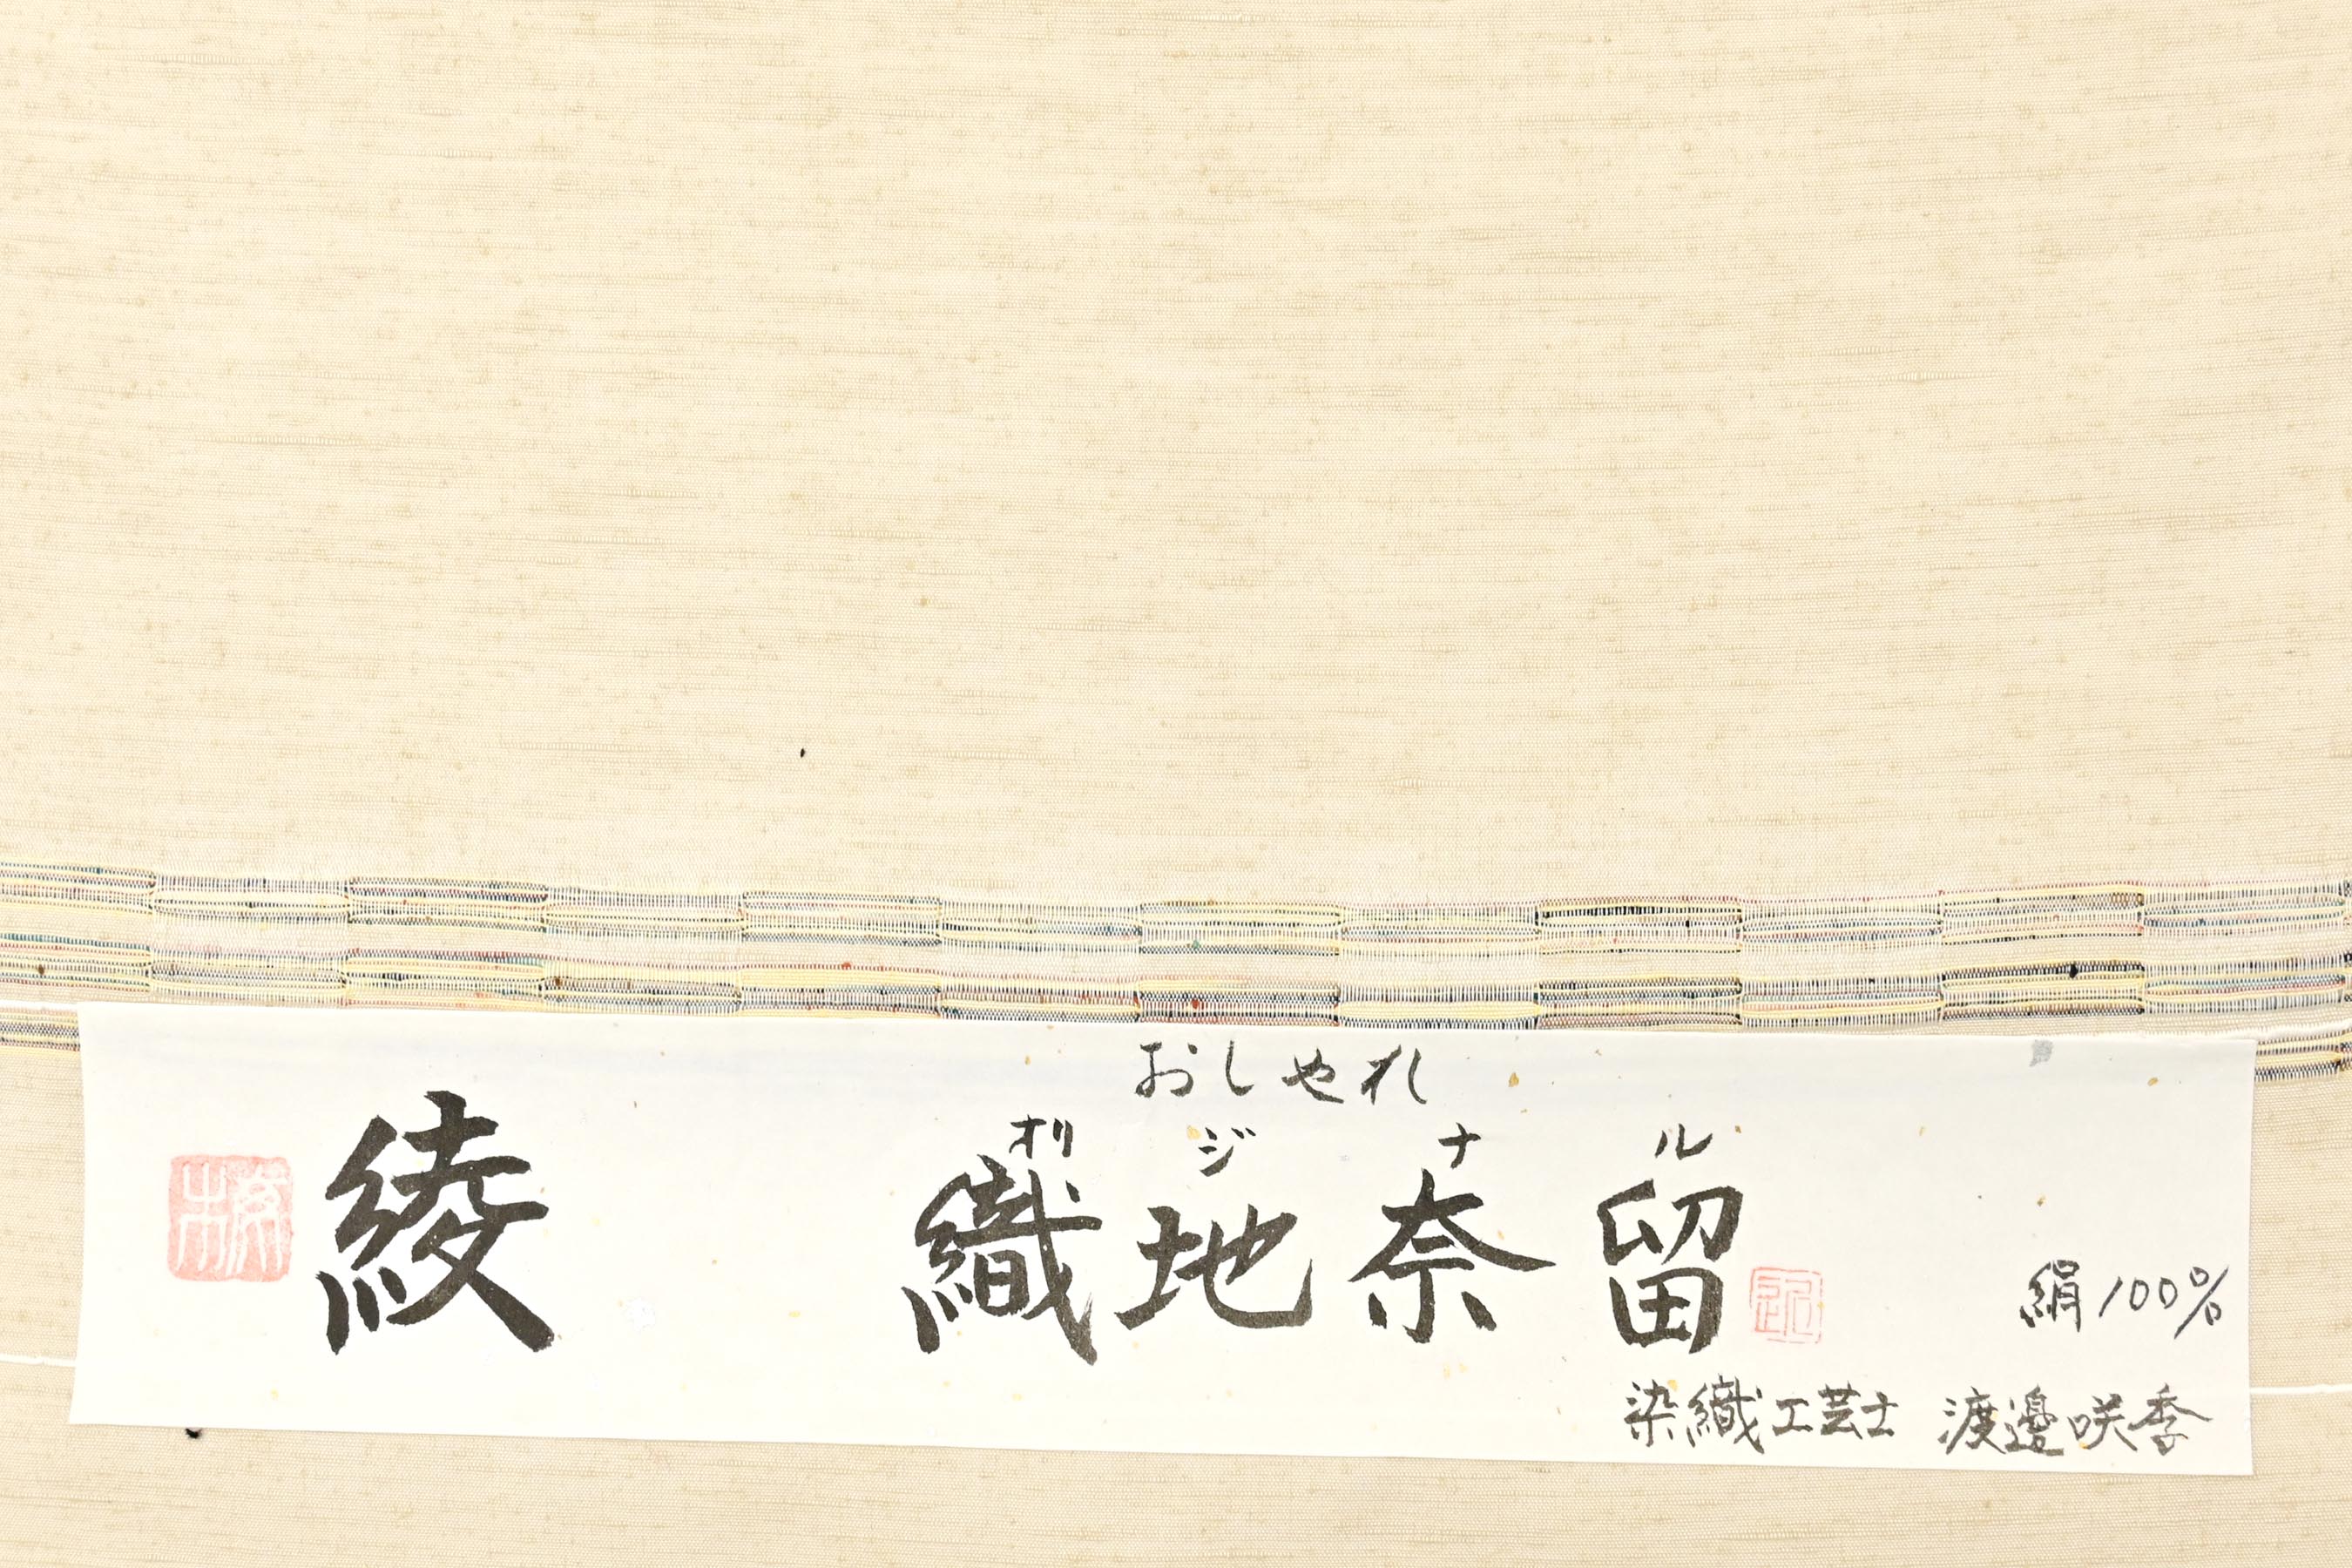 おしゃれ
オリ ジ ナ ル
綾 織地奈留
絹100%
染織工芸士 渡邊咲季